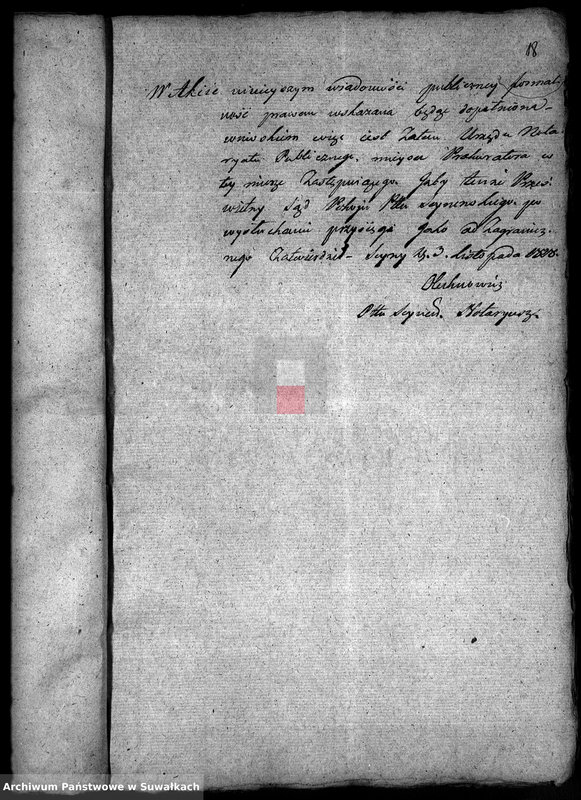 18
W Akcie ninieyszym wiadomości publiczney formal
ność prawem wskazana będąc dopełniona
wnioskiem więc iest Zatem Urzędu Nota
ryatu Publicznego mieysce Prokuratora w
tey mierze Zastępuiącego. Żaby tenże Prześ
wietny Sąd Pokoju Pttu Seyneńskiego po
wysłuchaniu przysięgi Jako od Zagranicz
nego Zatwierdził – Seyny d. 3. listopada
Pttu Seyneń. Notaryusz.
Archiwum Państwowe w Suwałkach